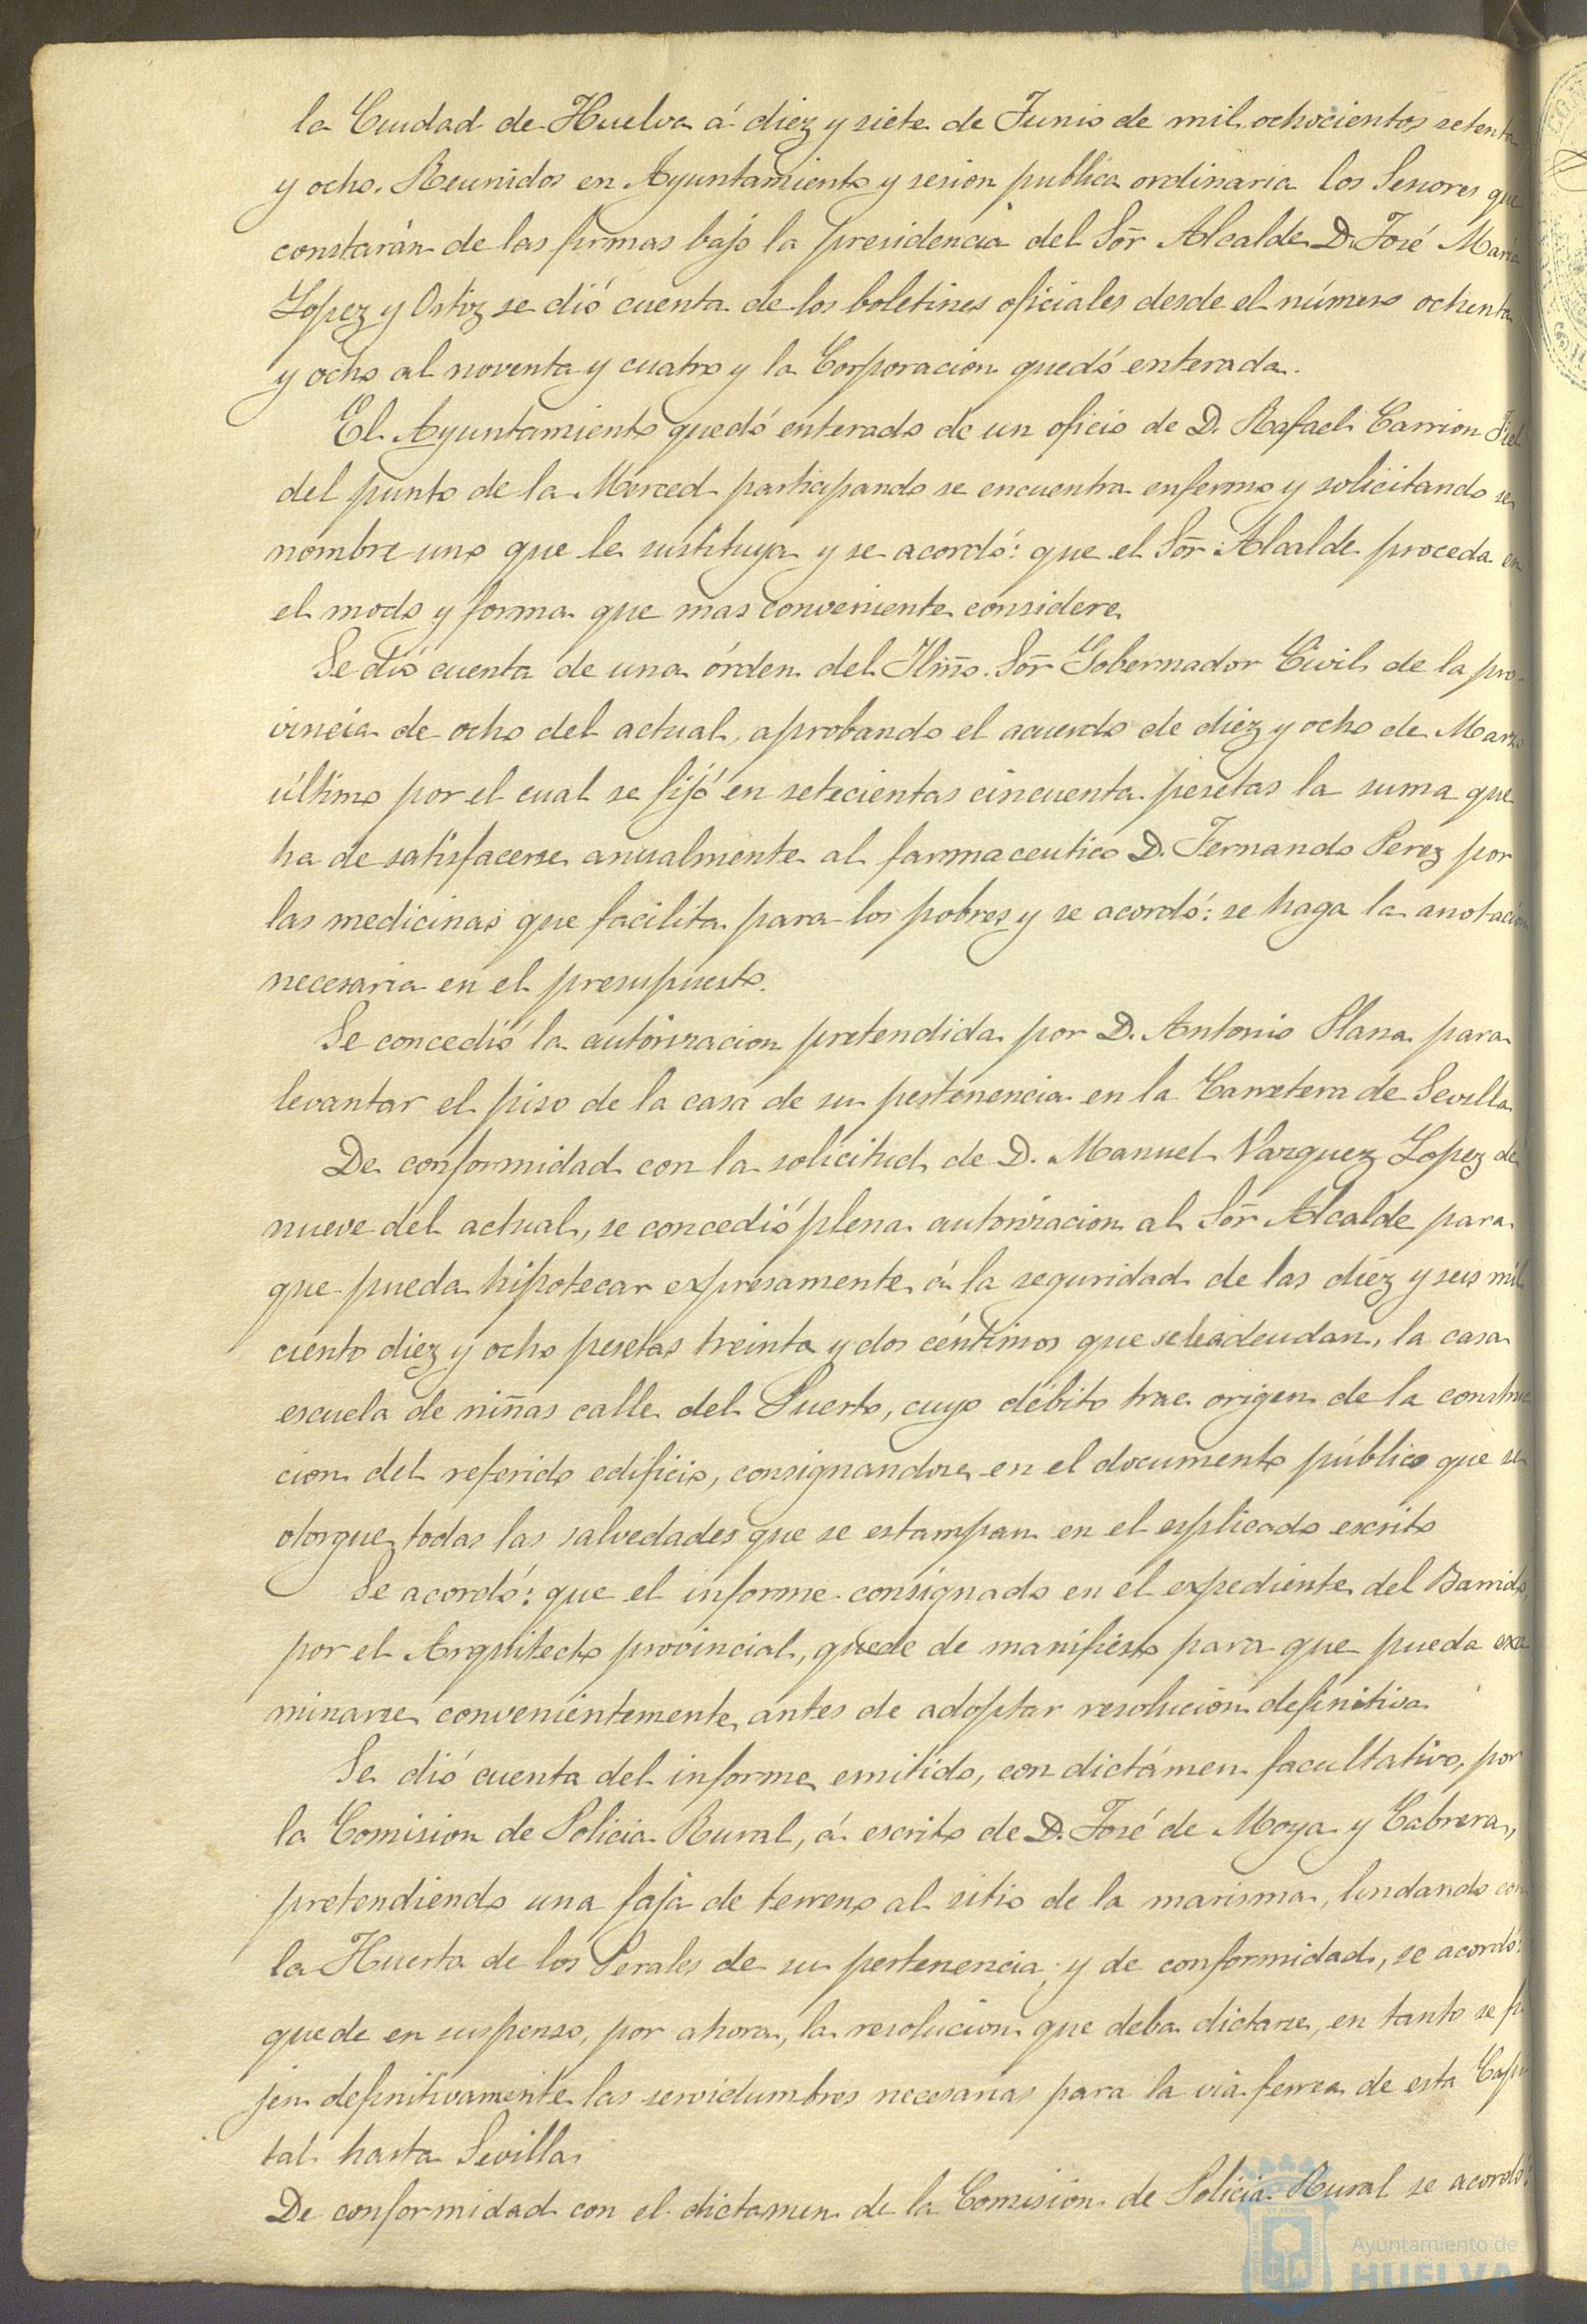 la Ciudad de Huelva á diez y siete de Junio de mil ochocientos setenta
y ocho. Reunidos en Ayuntamiento y sesion publica ordinaria los Señores que
constarán de las firmas bajo la presidencia del Sor̃ Alcalde D. José Maria
Lopez y Ortiz se dió cuenta de los boletines oficiales desde el número ochenta
y ocho al noventa y cuatro y la Corporacion quedó enterada.
El Ayuntamiento quedó enterado de un oficio de D. Rafael Carrion Fiel
del punto de la Merced participando se encuentra enfermo y solicitando se
nombre uno que le sustituya y se acordó: que el Sor̃ Alcalde proceda en
el modo y forma que mas conveniente considere
Se dió cuenta de una órden del Ilm̃o. Sor̃ Gobernador Civil de la pro-
vincia de ocho del actual, aprobando el acuerdo de diez y ocho de Marzo
último por el cual se fijó en setecientas cincuenta pesetas la suma que
ha de satisfacerse anualmente al farmaceutico D. Fernando Perez por
las medicinas que facilita para los pobres y se acordó: se haga la anotacion
necesaria en el presupuesto.
Se concedió la autorizacion pretendida por D. Antonio Plana para
levantar el piso de la casa de su pertenencia en la Carretera de Sevilla
De conformidad con la solicitud de D. Manuel Vazquez Lopez de
nueve del actual, se concedió plena autorizacion al Sor̃ Alcalde para
que pueda hipotecar expresamente á la seguridad de las diez y seis mil
ciento diez y ocho pesetas treinta y dos céntimos que se le adeudan, la casa
escuela de niñas calle del Puerto, cuyo débito trae origen de la construc
cion del referido edificio, consignandose en el documento público que se
otorgue todas las salvedades que se estampan en el esplicado escrito
Se acordó: que el informe consignado en el expediente del Barrido,
por el Arquitecto provincial, quede de manifiesto para que pueda exa
minarse convenientemente antes de adoptar resolucion definitiva
Se dió cuenta del informe emitido, con dictámen facultativo, por
la Comision de Policia Rural, á escrito de D. José de Moya y Cabrera,
pretendiendo una faja de terreno al sitio de la marisma, lindando con
la Huerta de los Perales de su pertenencia; y de conformidad, se acordó:
quede en suspenso, por ahora, la resolucion que deba dictarse, en tanto se fi
jen definitivamente las servidumbres necesarias para la via ferrea de esta Capi
tal hasta Sevilla
De conformidad con el dictamen de la Comision de Policia Rural se acordó:
Ayuntamiento de
HUELVA